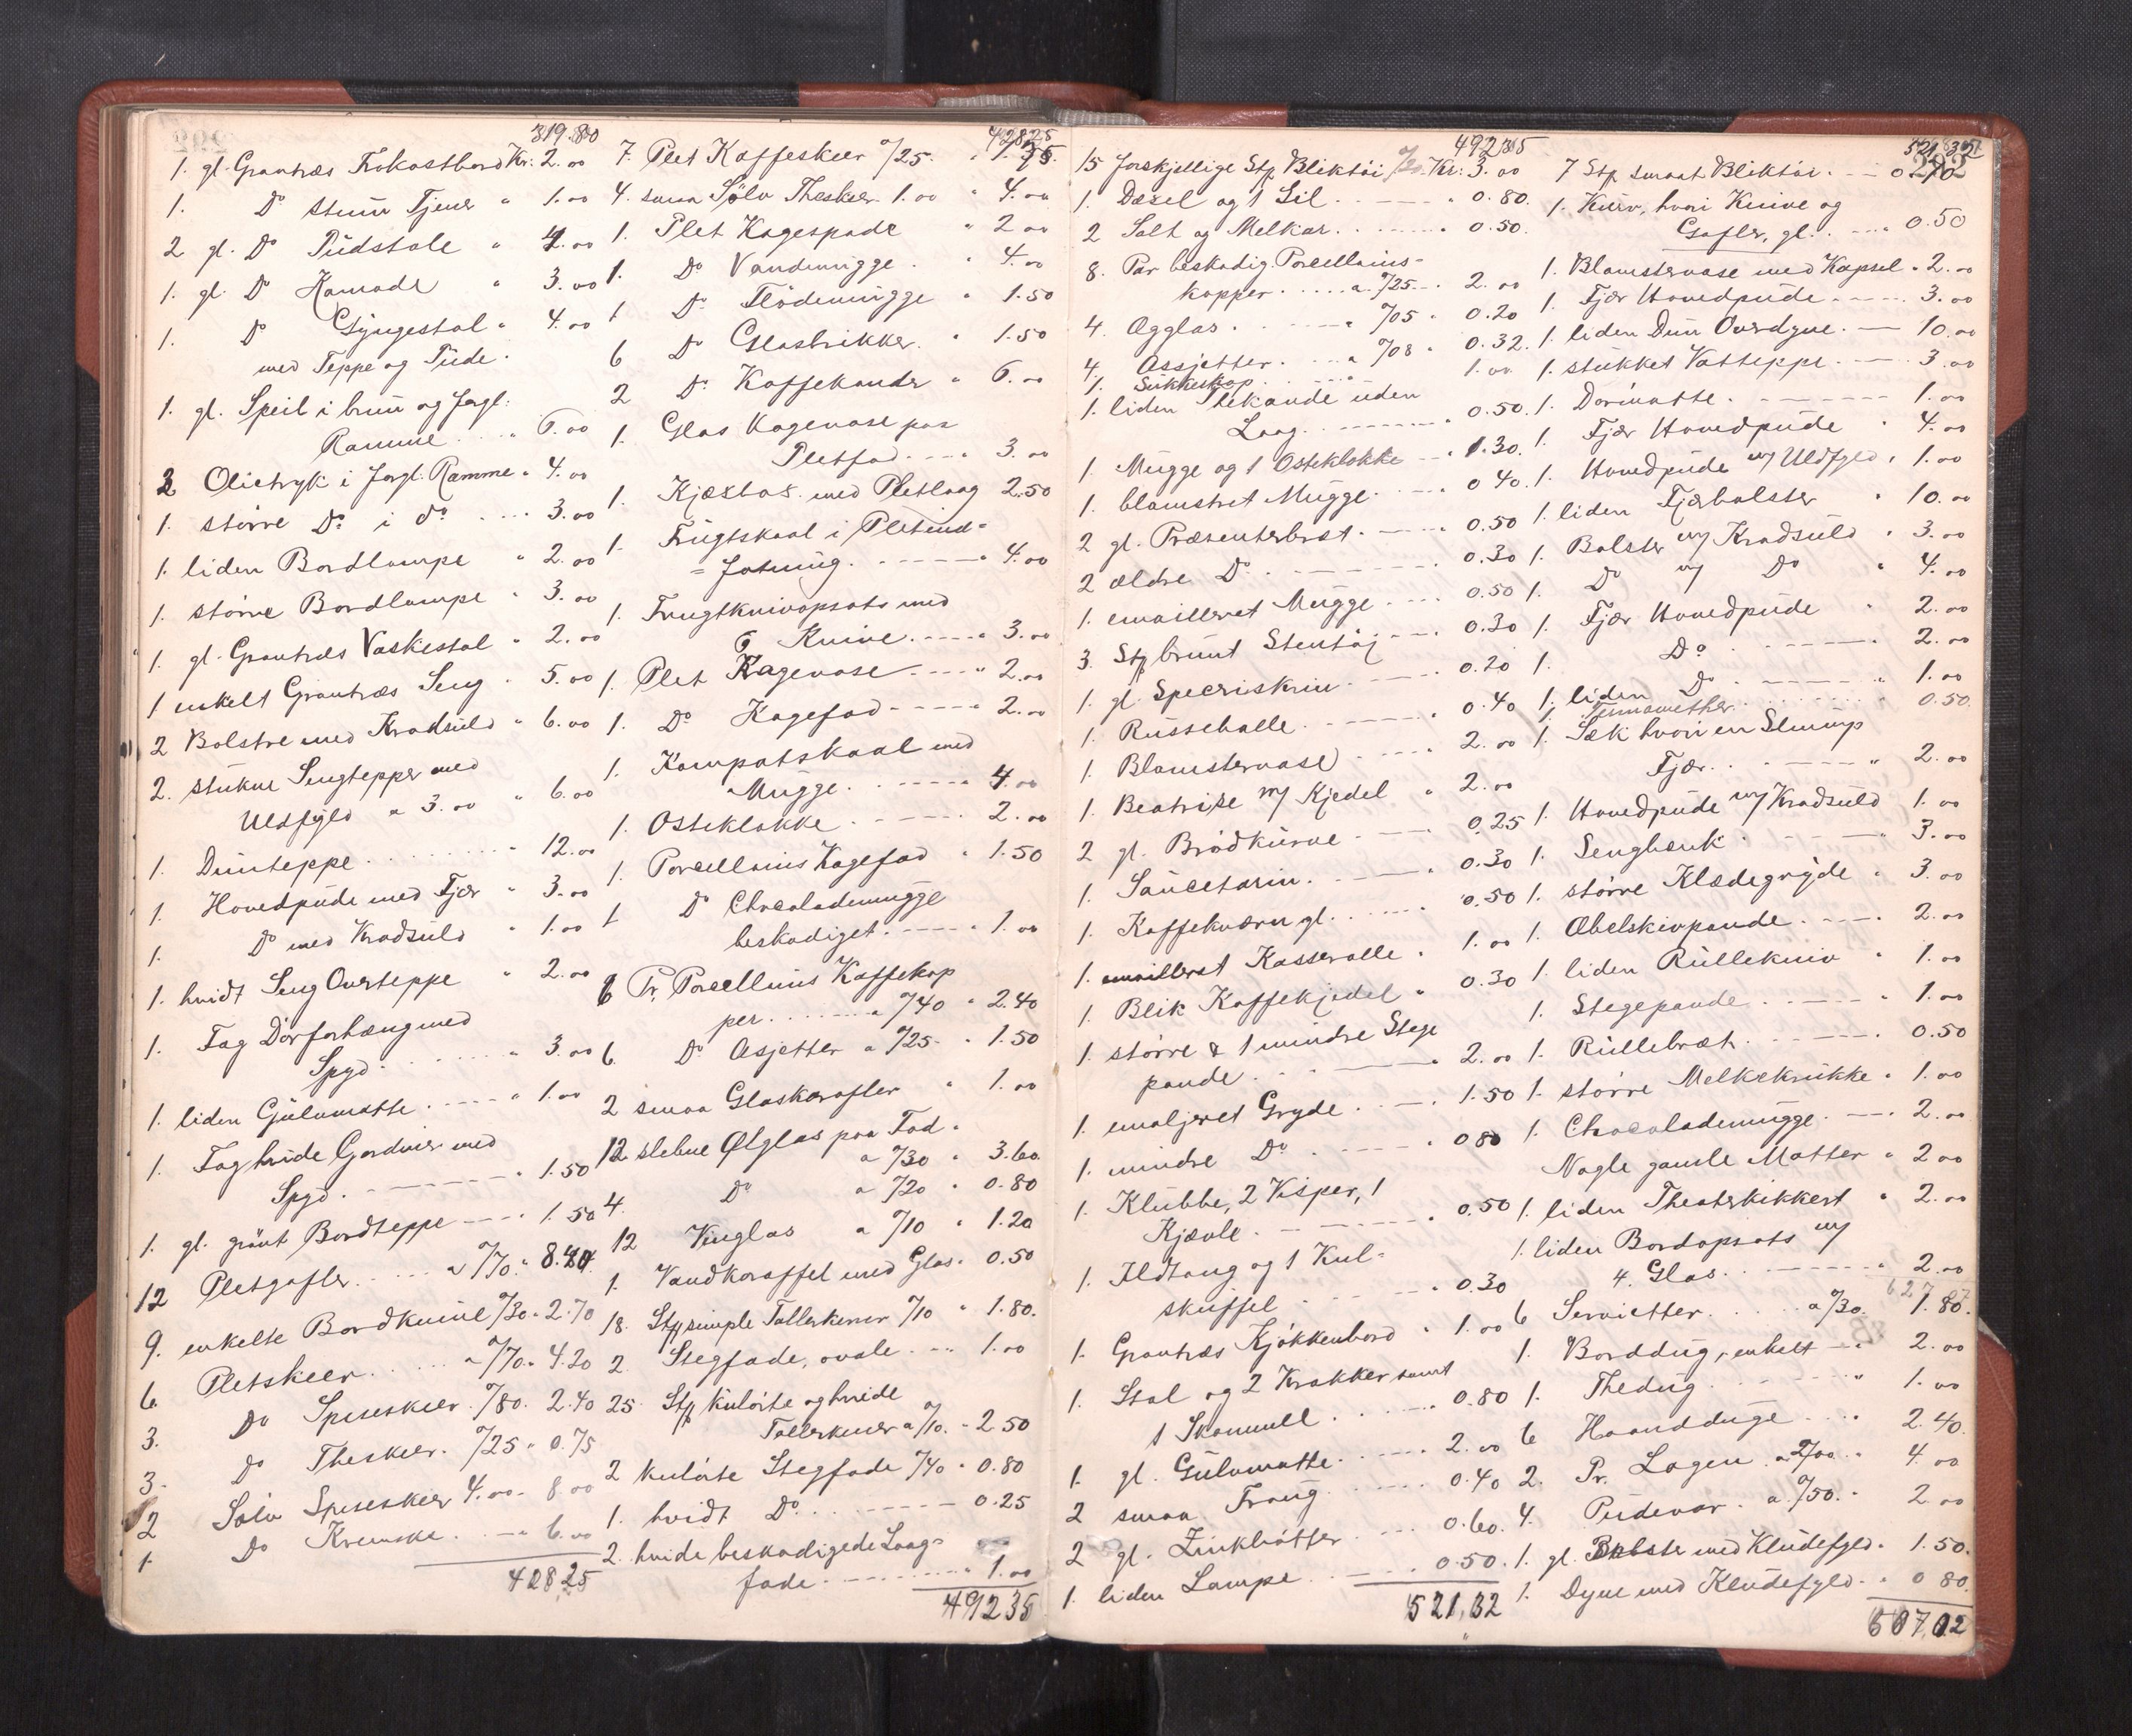 319.80
1. gl. Grantræs Frokostbord Kr. 2.00
1. Do stum Tjener " 1.00
2 gl. Do Pudstole " 4.00
1. gl. Do Komode " 3.00
1. Do Gyngestol " 4.00
med Teppe og Pude.
1. gl. Speil i brun og forgl.
Ramme " 6.00
2 Olietryk i forgl. Ramme " 4.00
1. større Do i do 3.00
1. liden Bordlampe " 2.00
1. større Bordlampe " 3.00
1. gl. Grantræs Vaskestol " 2.00
1 enkelt Grantræs Seng " 5.00
2 Bolstre med Kradsuld " 6.00
2. stukne Sengtepper med
Uldfyld a 3.00 " 6.00
1. Dunteppe " 12.00
1. Hovedpude med Fjær " 3.00
1. Do med Kradsuld " 1.00
1. hvidt Seng Overteppe " 2.00
1. Fag Dørforhæng med
Spyd " 3.00
1. liden Gulvmatte " 1.00
1. Fag hvide Gardiner med
Spyd " 1.50
1. gl. grønt Bordteppe 1.50
12 Pletgafler a %70 " 8.40
9. enkelte Bordknive %30 " 2.70
6 Pletskeer a %70 " 4.20
3. Do Spiseskeer %80. 2.40
3. Do Theskeer. %25 " 0.75
2 Sølv Spiseskeer 4.00 " 8.00
1 Do Kremske " 6.00
428,25
428.25
7. Plet Kaffeskeer %25. " 1.75
4. smaa Sølv Theskeer 1.00 " 4.00
1. Plet Kagespade " 2.00
1. Do Vandmugge " 4.00
1 Do Flødemugge " 1.50
6 Do Glasbrikker " 1.50
2 Do Kaffekander " 6.00
1. Glas Kagevase paa
Pletfod " 3.00
1. Kjæxbox med Pletlaag 2.50
1. Frugtskaal i Pletind-
= fatning " 4.00
1. Frugtknivopsats med
6 Knive " 3.00
1. Plet Kagevase " 2.00
1. Do Kagefad 2.00
1. Kompotskaal med
Mugge 4.00
1. Osteklokke 2.00
1. Porcellains Kagefad " 1.50
1 Do Chocolademugge
beskadiget " 1.00
6 Pr. Porcellains Kaffekop
per a %40 " 2.40
6. Do Asjetter a %25 " 1.50
2 smaa Glaskarafler " 1.00
12 slebne Ølglas paa Fod.
a %30 " 3.60.
4. Do a %20 " 0.80
12 Vinglas a %10 " 1.20
1. Vandkaraffel med Glas " 0.50
18. Stp simple Tallerkener %10 " 1.80.
2. Stegfade, ovale 1.00
25. Stp kulørte og hvide
Tallerkener a %10. " 2.50
2 kulørte Stegfade %40 " 0.80
1. hvidt Do 0.25
2. hvide beskadigede Laag-
fade " 1.00
492 35
492.35
15 forskjellige Stp Bliktøi %20 Kr. 3.00
1. Dæsel og 1 Sil " 0.80.
2 Salt og Melkar " 0.50.
8. Par beskadig. Porcellains-
kopper a %25 " 2.00
4. Ægglas " %05 " 0.20
4. Assjetter a %08 " 0.32.
1. Sukkeskop 1.00
1. liden Thekande uden
Laag " 0.50.
1. Mugge og 1 Osteklokke 1.30.
1. blomstret Mugge " 0 40.
2 gl. Præsenterbræt " 0.50
2 ældre Do 0.30
1. emailleret Mugge 0.50
3. Stp brunt Stentøj 0.30
1. gl. Specriskrin 0.20
1. Russeballe " 0.40
1. Blomstervase 2.00
1. Beatrise m/ Kjedel " 2.00
2 gl. Brødkurve 0.25
1. Saucetarin " 0.30
1. Kaffekværn gl. 0.50
1. emailleret Kasserolle " 1.00
1. Blik Kaffekjedel " 0.30
1. større & 1 mindre Stege
pande " 2.00
1. emaljeret Gryde 1.50
1. mindre Do " 0 80
1. Klubbe, 2 Visper, 1
Kjævle " 0.50
1. Ildtang og 1 Kul-
skuffel " 0.30
1. Grantræs Kjøkkenbord " 1.00
1. Stol og 2 Krakker samt
1 Skammel 0.80
1. gl. Gulvmatte " 2.00
2 smaa Traug 0.40
2 gl. Zinkbøtter 0.60.
1. liden Lampe 0.50.
521,32
521.32
292
7 Stp smaat Bliktøi " 0.70
1. Kurv, hvori Knive og
Gafler, gl. " 0.50
1. Blomstervase med Kapsel " 2.00
1. Fjær Hovedpude 3.00
1. liden Dun Overdyne 10.00
1. stukket Vatteppe 3.00
1. Dørmatte 1.00
1. Fjær Hovedpude " 4.00
1. Hovedpude m/ Uldfyld " 1.00
1. liden Fjærbolster " 10.00
1. Bolster m/ Kradsuld " 3.00
1. Do m/ Do " 4.00
1. Fjær Hovedpude " 2.00
1. Do 2.00
1. liden Do " 1.00
1. Termomether " 0.50.
1. Sæk hvori en Slump
Fjær " 2.00
1. Hovedpude m/ Kradsuld 1.00
1. Sengbænk " 3.00
1. større Klædegryde " 3.00
1. Æbelskivpande 2.00
1. liden Rullekniv " 1.00
1. Stegepande " 1.00
1. Rullebræt 0.50
1. større Melkekrukke " 1.00
1. Chocolademugge 2.00
Nogle gamle Matter " 2 00
1. liden Theaterkikkert " 2.00
1. liden Bordopsats m/
4. Glas " 2.00
6 Servietter a %30. 1.80.
1. Borddug, enkelt 2.00
1. Thedug " 1.00
6 Haandduge 2.40.
2. Pr. Lagen a 2/00 " 4.00
4. Pudevar a %50. " 2.00
1. gl. Bolster med Kludefyld " 1.50.
1. Dyne med Kludefyld " 0 80.